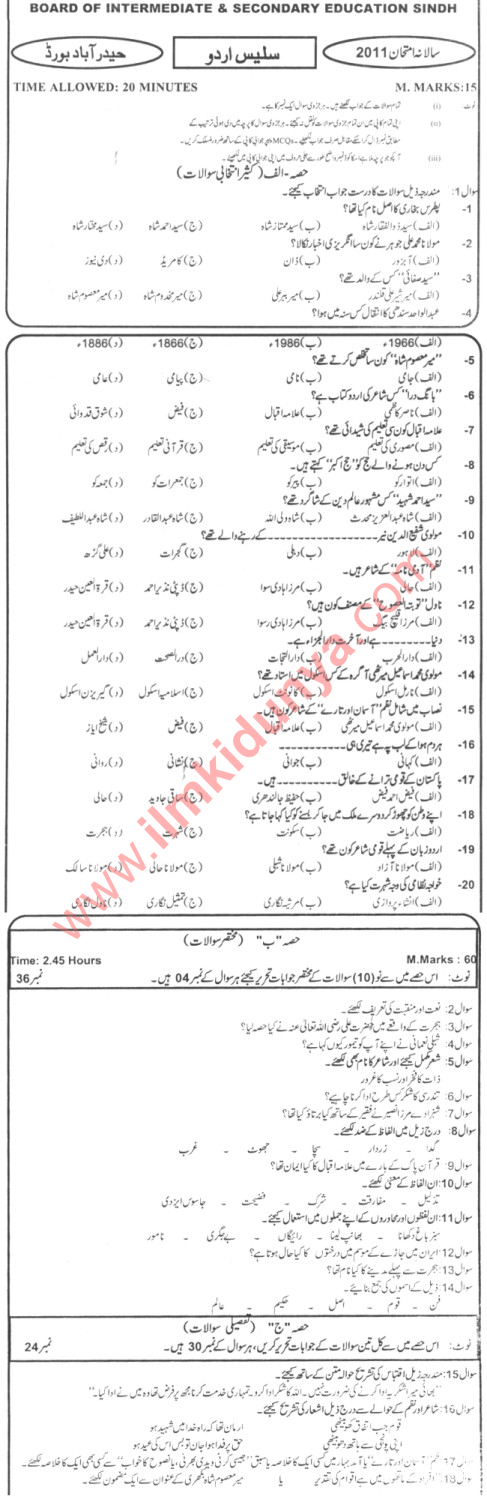 BOARD OF INTERMEDIATE & SECONDARY EDUCATION SINDH
سالانہ امتحان 2011
سلیس اردو
حیدر آباد بورڈ
TIME ALLOWED: 20 MINUTES M. MARKS:15
نوٹ (i) تمام سوالات کے جواب لکھنے ہیں۔ ہر جزوی سوال ایک نمبر کا ہے۔
حصہ - الف (کثیر انتخابی سوالات)
سوال 1: مندرجہ ذیل سوالات کا درست جواب انتخاب کیجئے۔
1- پطرس بخاری کا اصل نام کیا تھا؟
(الف) سید ذوالفقار شاہ (ب) سید ممتاز شاہ (ج) سید احمد شاہ (د) سید مختار شاہ
2- مولانا محمد علی جوہر نے کون سا انگریزی اخبار نکالا؟
(الف) آبزرور (ب) ڈان (ج) کامریڈ (د) دی نیوز
3- "سید صفائی" کس کے والد تھے؟
(الف) میر شیر علی قلندر (ب) میر ببر علی (ج) میر مخدوم شاہ (د) میر معصوم شاہ
4- عبدالواحد سندھی کا انتقال کس سنہ میں ہوا؟
(الف) 1966ء (ب) 1986ء (ج) 1866ء (د) 1886ء
5- "میر معصوم شاہ" کون سا تخلص کرتے تھے؟
(الف) جامی (ب) نامی (ج) پیامی (د) عامی
6- "بانگ درا" کس شاعر کی اردو کتاب ہے؟
(الف) ناصر کاظمی (ب) علامہ اقبال (ج) فیض (د) شوق قدوائی
7- علامہ اقبال کون سی تعلیم کی شیدائی تھے؟
(الف) مصوری کی تعلیم (ب) موسیقی کی تعلیم (ج) قرآنی تعلیم (د) رقص کی تعلیم
8- کس دن ہونے والے حج کو "حج اکبر" کہتے ہیں۔
(الف) اتوار کو (ب) پیر کو (ج) جمعرات کو (د) جمعہ کو
9- "سید احمد شہید" کس مشہور عالم دین کے شاگرد تھے؟
(الف) شاہ عبدالعزیز محدث (ب) شاہ ولی اللہ (ج) شاہ عبدالقادر (د) شاہ عبداللطیف
10- مولوی شفیع الدین نیر ---------- کے رہنے والے تھے؟
(الف) لاہور (ب) دہلی (ج) گجرات (د) علی گڑھ
11- نظم "آدمی نامہ" کے شاعر ہیں۔
(الف) حالی (ب) مرزا ہادی سوا (ج) ڈپٹی نذیر احمد (د) قرۃ العین حیدر
12- ناول "توبتہ النصوح" کے مصنف کون ہیں؟
(الف) مرزا قلیچ بیگ (ب) مرزا ہادی رسوا (ج) ڈپٹی نذیر احمد (د) قرۃ العین حیدر
13- دنیا -------- ہے اور آخرت دارالجزاء ہے۔
(الف) دارالحرب (ب) دارالنجات (ج) دارالصحت (د) دارالعمل
14- مولوی محمد اسماعیل میرٹھی آگرہ کے کس اسکول میں استاد تھے؟
(الف) نارمل اسکول (ب) کانونٹ اسکول (ج) اسلامیہ اسکول (د) گیریژن اسکول
15- نصاب میں شامل نظم "آسمان اور تارے" کے شاعر کون ہیں۔
(الف) مولوی محمد اسماعیل میرٹھی (ب) علامہ اقبال (ج) فیض (د) شیخ ایاز
16- ہر دم ہوا کے لب پہ ہے تیری ہی ----------
(الف) کہانی (ب) جوانی (ج) نشانی (د) روانی
17- پاکستان کے قومی ترانے کے خالق ---------- ہیں۔
(الف) فیض احمد فیض (ب) حفیظ جالندھری (ج) ساقی جاوید (د) حالی
18- اپنے وطن کو چھوڑ کر دوسرے ملک میں جا کر بسنے کو کیا کہا جاتا ہے؟
(الف) ریاضت (ب) سکونت (ج) شہرت (د) ہجرت
19- اردو زبان کے پہلے قومی شاعر کون تھے؟
(الف) مولانا آزاد (ب) مولانا شبلی (ج) مولانا حالی (د) مولانا سالک
20- خواجہ نظامی کی وجہ شہرت کیا ہے؟
(الف) انشاء پردازی (ب) مرثیہ نگاری (ج) تمثیل نگاری (د) ناول نگاری
www.ilmkidunya.com
حصہ "ب" (مختصر سوالات)
Time: 2.45 Hours M.Marks : 60
نوٹ: اس حصے میں سے نو (10) سوالات کے مختصر جوابات تحریر کیجئے ہر سوال کے نمبر 04 ہیں۔ نمبر 36
سوال 2: نعت اور منقبت کی تعریف لکھئے۔
سوال 3: ہجرت کے واقعے میں حضرت علی رضی اللہ تعالیٰ عنہ نے کیا حصہ لیا؟
سوال 4: شبلی نعمانی نے اپنے آپ کو تیمور کیوں کہا ہے؟
سوال 5: شعر مکمل کیجئے اور شاعر کا نام بھی لکھئے۔
ذات کا فخر اور نسب کا غرور
سوال 6: تندرسی کا شکر کس طرح ادا کرنا چاہیے؟
سوال 7: شہزادے مرزا نصیر نے فقیر کے ساتھ کیا برتاؤ کیا تھا؟
سوال 8: درج زیل میں الفاظ کے ضد لکھئے۔
گدا - زردار - سچا - جھوٹ - غرب
سوال 9: قرآن پاک کے بارے میں علامہ اقبال کا کیا ایمان تھا؟
سوال 10: ان الفاظ کے معنیٰ لکھئے۔
تذلیل - مفارقت - شرک - فضیحت - جاسوس ایزدی
سوال 11: ان لفظوں اور محاوروں کے اپنے جملوں میں استعمال کیجئے۔
سبز باغ دکھانا - بھانپ لینا - رائیگاں - بے جگری - نامور
سوال 12: ایران میں جاڑے کے موسم میں درختوں کا کیا حال ہوتا ہے؟
سوال 13: ہجرت سے پہلے مدینے کا کیا نام تھا؟
سوال 14: ذیل کے اسموں کی جمع بنائیے۔
فن - قوم - اصل - حکیم - عالم
حصہ "ج" (تفصیلی سوالات)
نوٹ: اس حصے میں سے کل تین سوالات کے جوابات تحریر کریں، ہر سوال کے نمبر 30 ہیں۔ نمبر 24
سوال 15: مندرجہ ذیل اقتباس کی تشریح حوالہ متن کے ساتھ کیجئے۔
"بھائی میرا شکریہ ادا کرنے کی ضرورت نہیں۔ اللہ کا شکر ادا کرو۔ تمہاری خدمت کرنا مجھ پر فرض تھا وہ میں نے ادا کیا۔"
سوال 16: شاعر اور نظم کے حوالے سے درج ذیل اشعار کی تشریح کیجئے۔
قوم جب اتفاق کھو بیٹھی ارمان تھا کہ راہ خدا میں شہید ہو
اپنی پونجی سے ہاتھ دھو بیٹھی حق پر فدا ہو جان تو بس اس کی عید ہو
سوال 17: نظم "آسمان اور تارے" یا "آمد بہار" میں کسی ایک کا خلاصہ یا سبق "جیسی کرنی ویسی بھرنی، یا نصوح کا خواب" سے کسی بھی ایک کا خلاصہ لکھئے۔
سوال 18: "افراد کے ہاتھوں میں ہے اقوام کی تقدیر یا میر معصوم شاہ بکھری کے عنوان سے ایک مضمون لکھئے۔